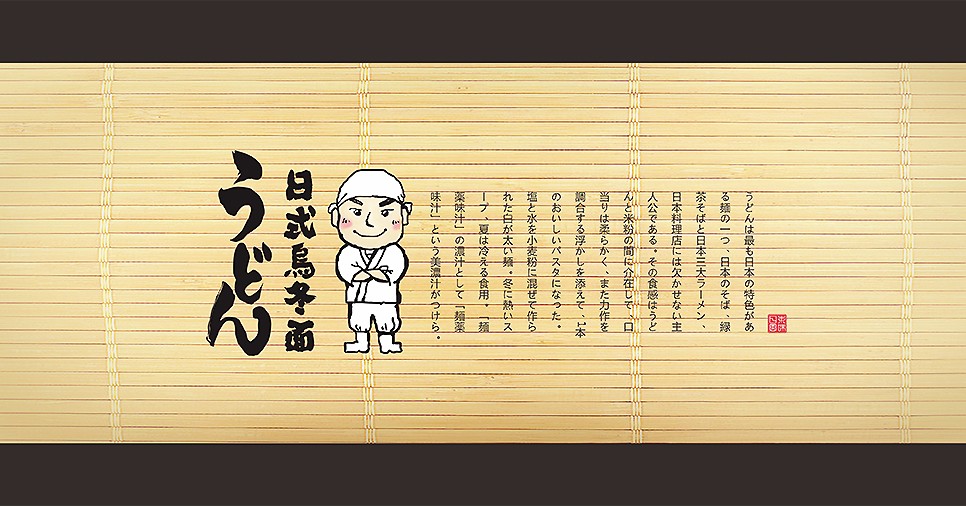 うどんは最も日本の特色があ
る麺の一つ、日本のそば、緑
茶そばと日本三大ラーメン、
日本料理店には欠かせない主
人公である。その食感はうど
んと米粉の間に介在して、口
当りは柔らかく、また力作を
調合する浮かしを添えて、1本
のおいしいパスタになった。
塩と水を小麦粉に混ぜて作ら
れた白が太い麺。冬に熱いス
ープ、夏は冷える食用。「麺
薬味汁」の濃汁として「麺薬
味汁」という美濃汁がつけら。
日式烏冬面
うどん